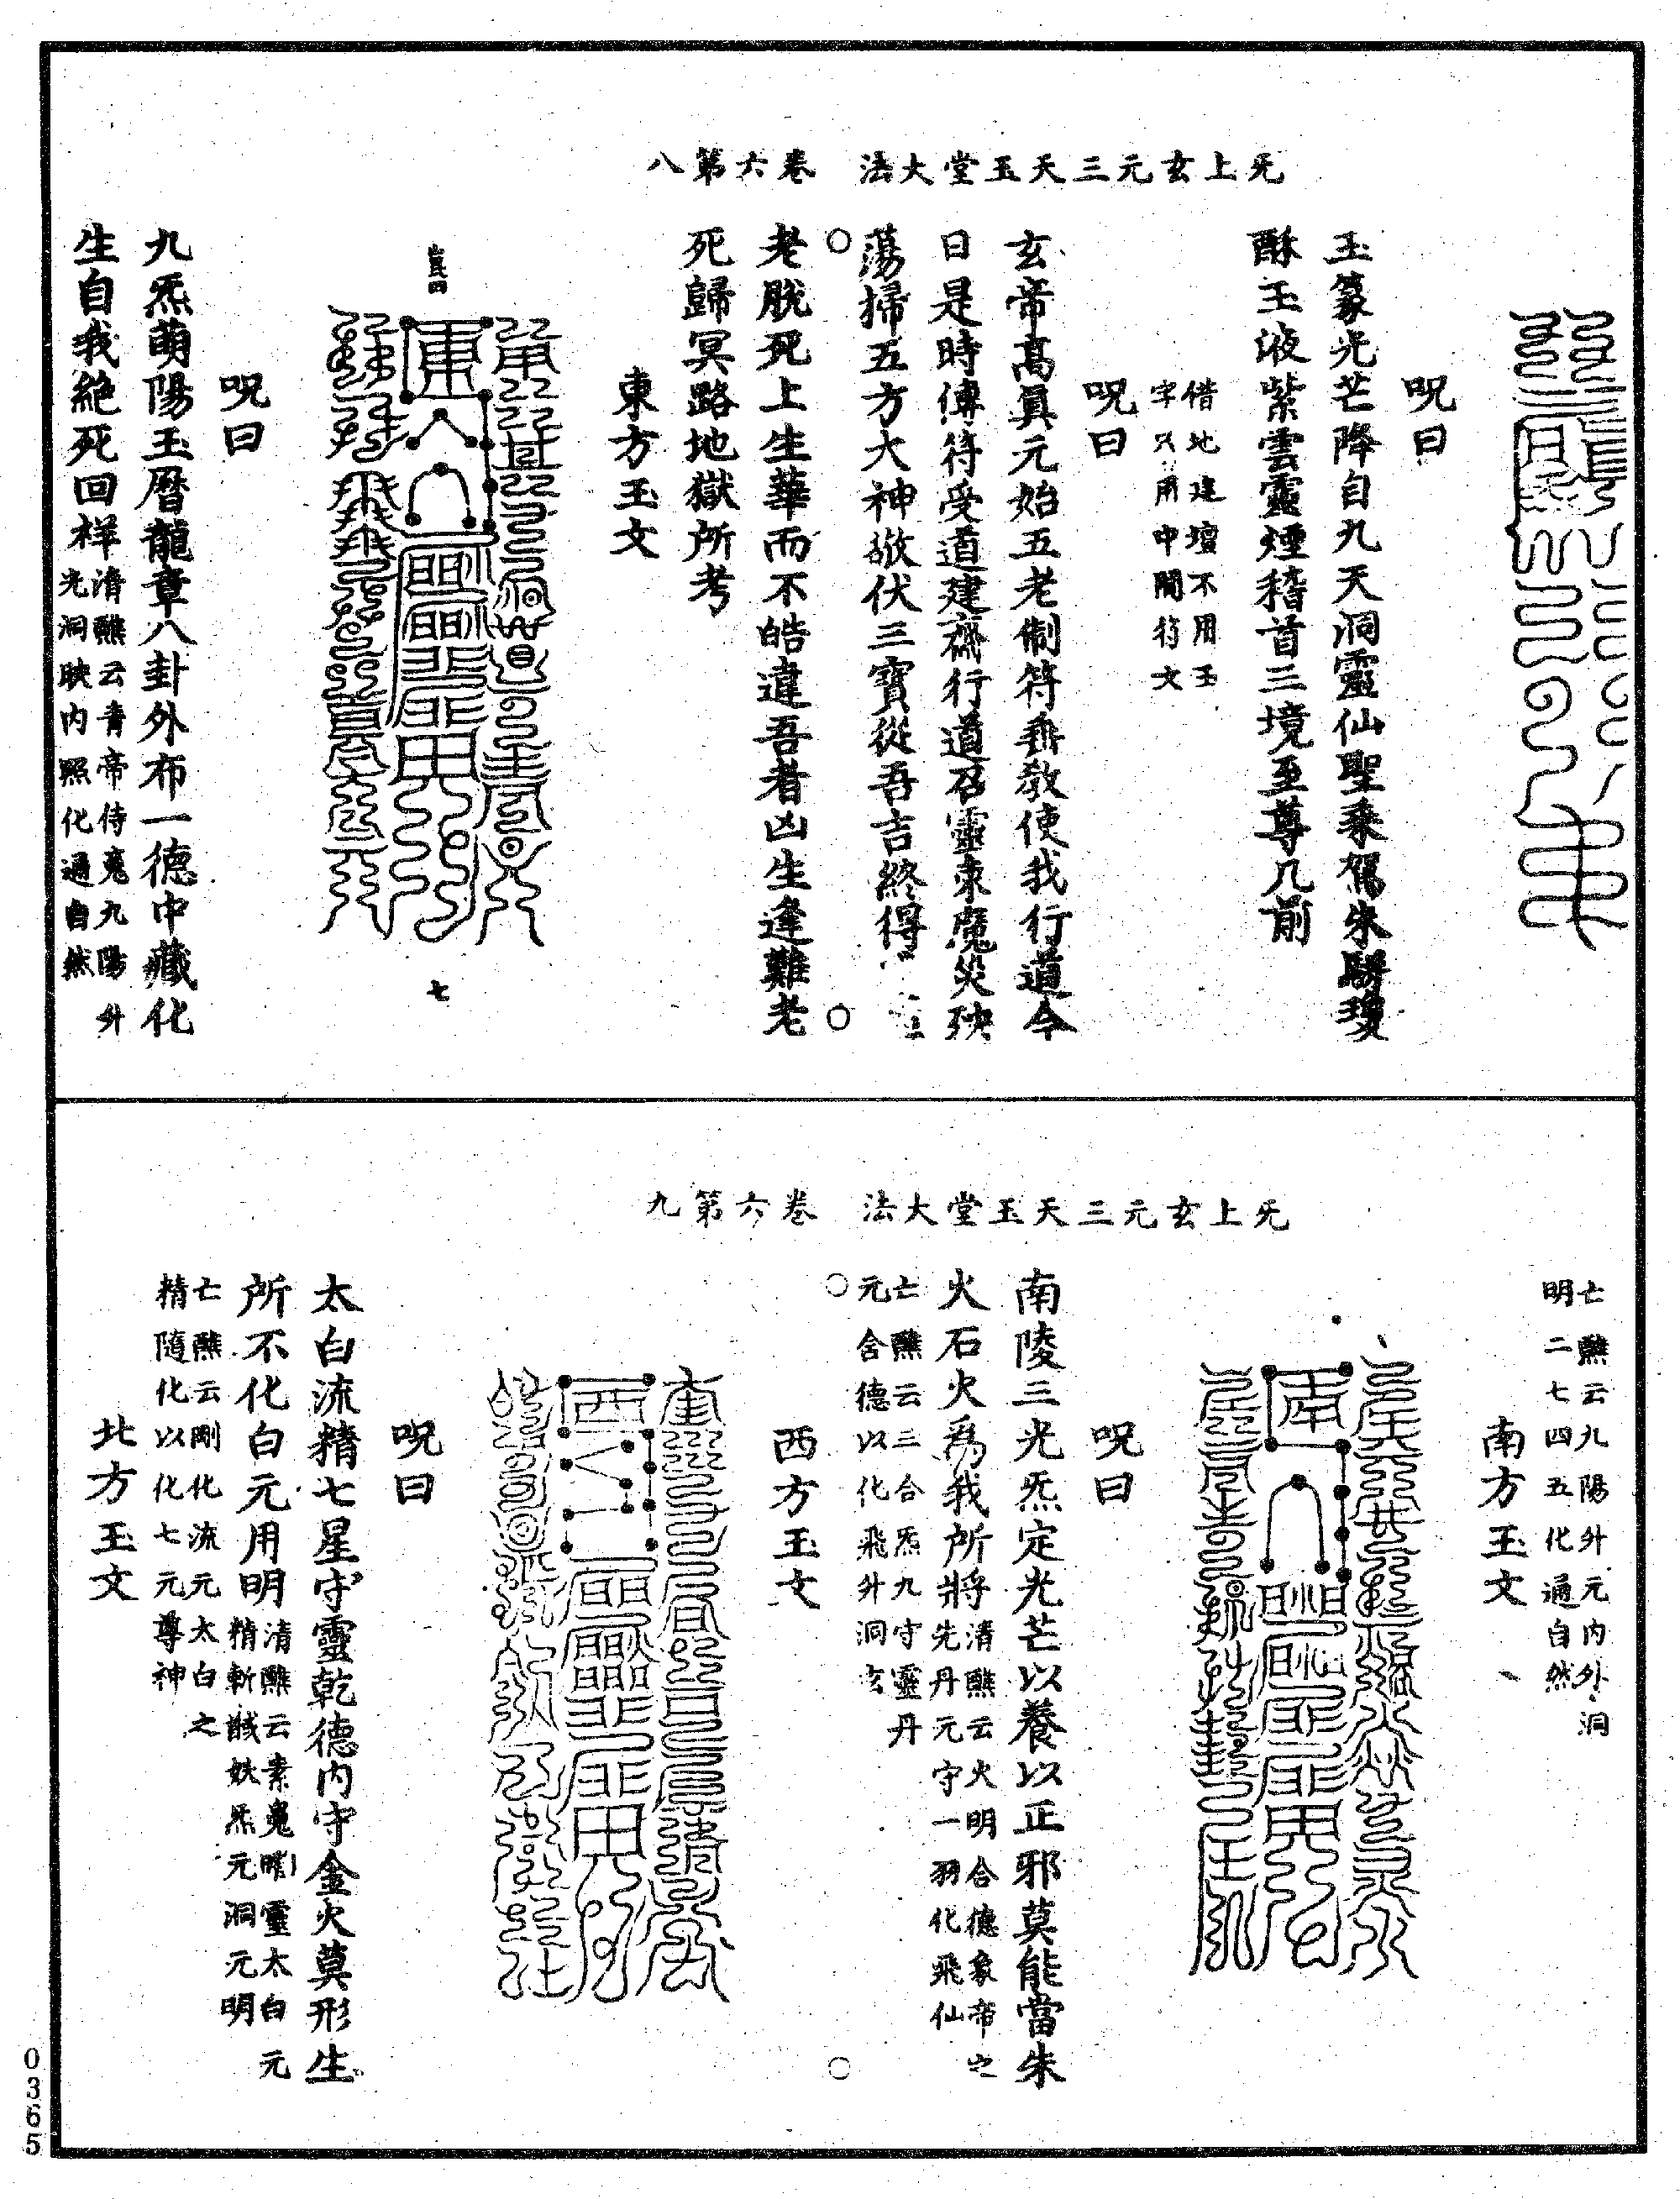 无上玄元三天玉堂大法　卷六第八
呪曰
玉篆光芒降自九天洞靈仙聖乘駕朱騑瓊
酥玉液紫雲靈煙稽首三境至尊几前
借地建壇不用玉
字只用中間符文
呪曰
玄帝高真元始五老制符垂教使我行道今
日是時傳符受道建齋行道召靈束魔災殃
蕩掃五方大神敬伏三寶從吾吉終得
老脫死上生華而不皓違吾者凶生逢難老
死歸冥路地獄所考
東方玉文
七
呪曰
九炁萌陽玉曆龍章八卦外布一德中藏化
生自我絶死回祥
清醮云青帝侍衛九陽外
光洞映内照化通自然
无上玄元三天玉堂大法　卷六第九
亡醮云九陽外元内外洞
明二七四五化通自然
南方玉文
呪曰
南陵三光炁定光芒以養以正邪莫能當朱
火石火為我所將
清醮云火明合德象帝之
先丹元守一羽化飛仙
亡醮云三合炁九守靈丹
元含德以化飛升洞玄
西方玉文
呪曰
太白流精七星守靈乾德内守金火莫形生
所不化白元用明
清醮云素嵬  靈太白元
精斬馘妖炁元洞元明
亡醮云剛化流元太白之
精隨化以化七元尊神
北方玉文
0365